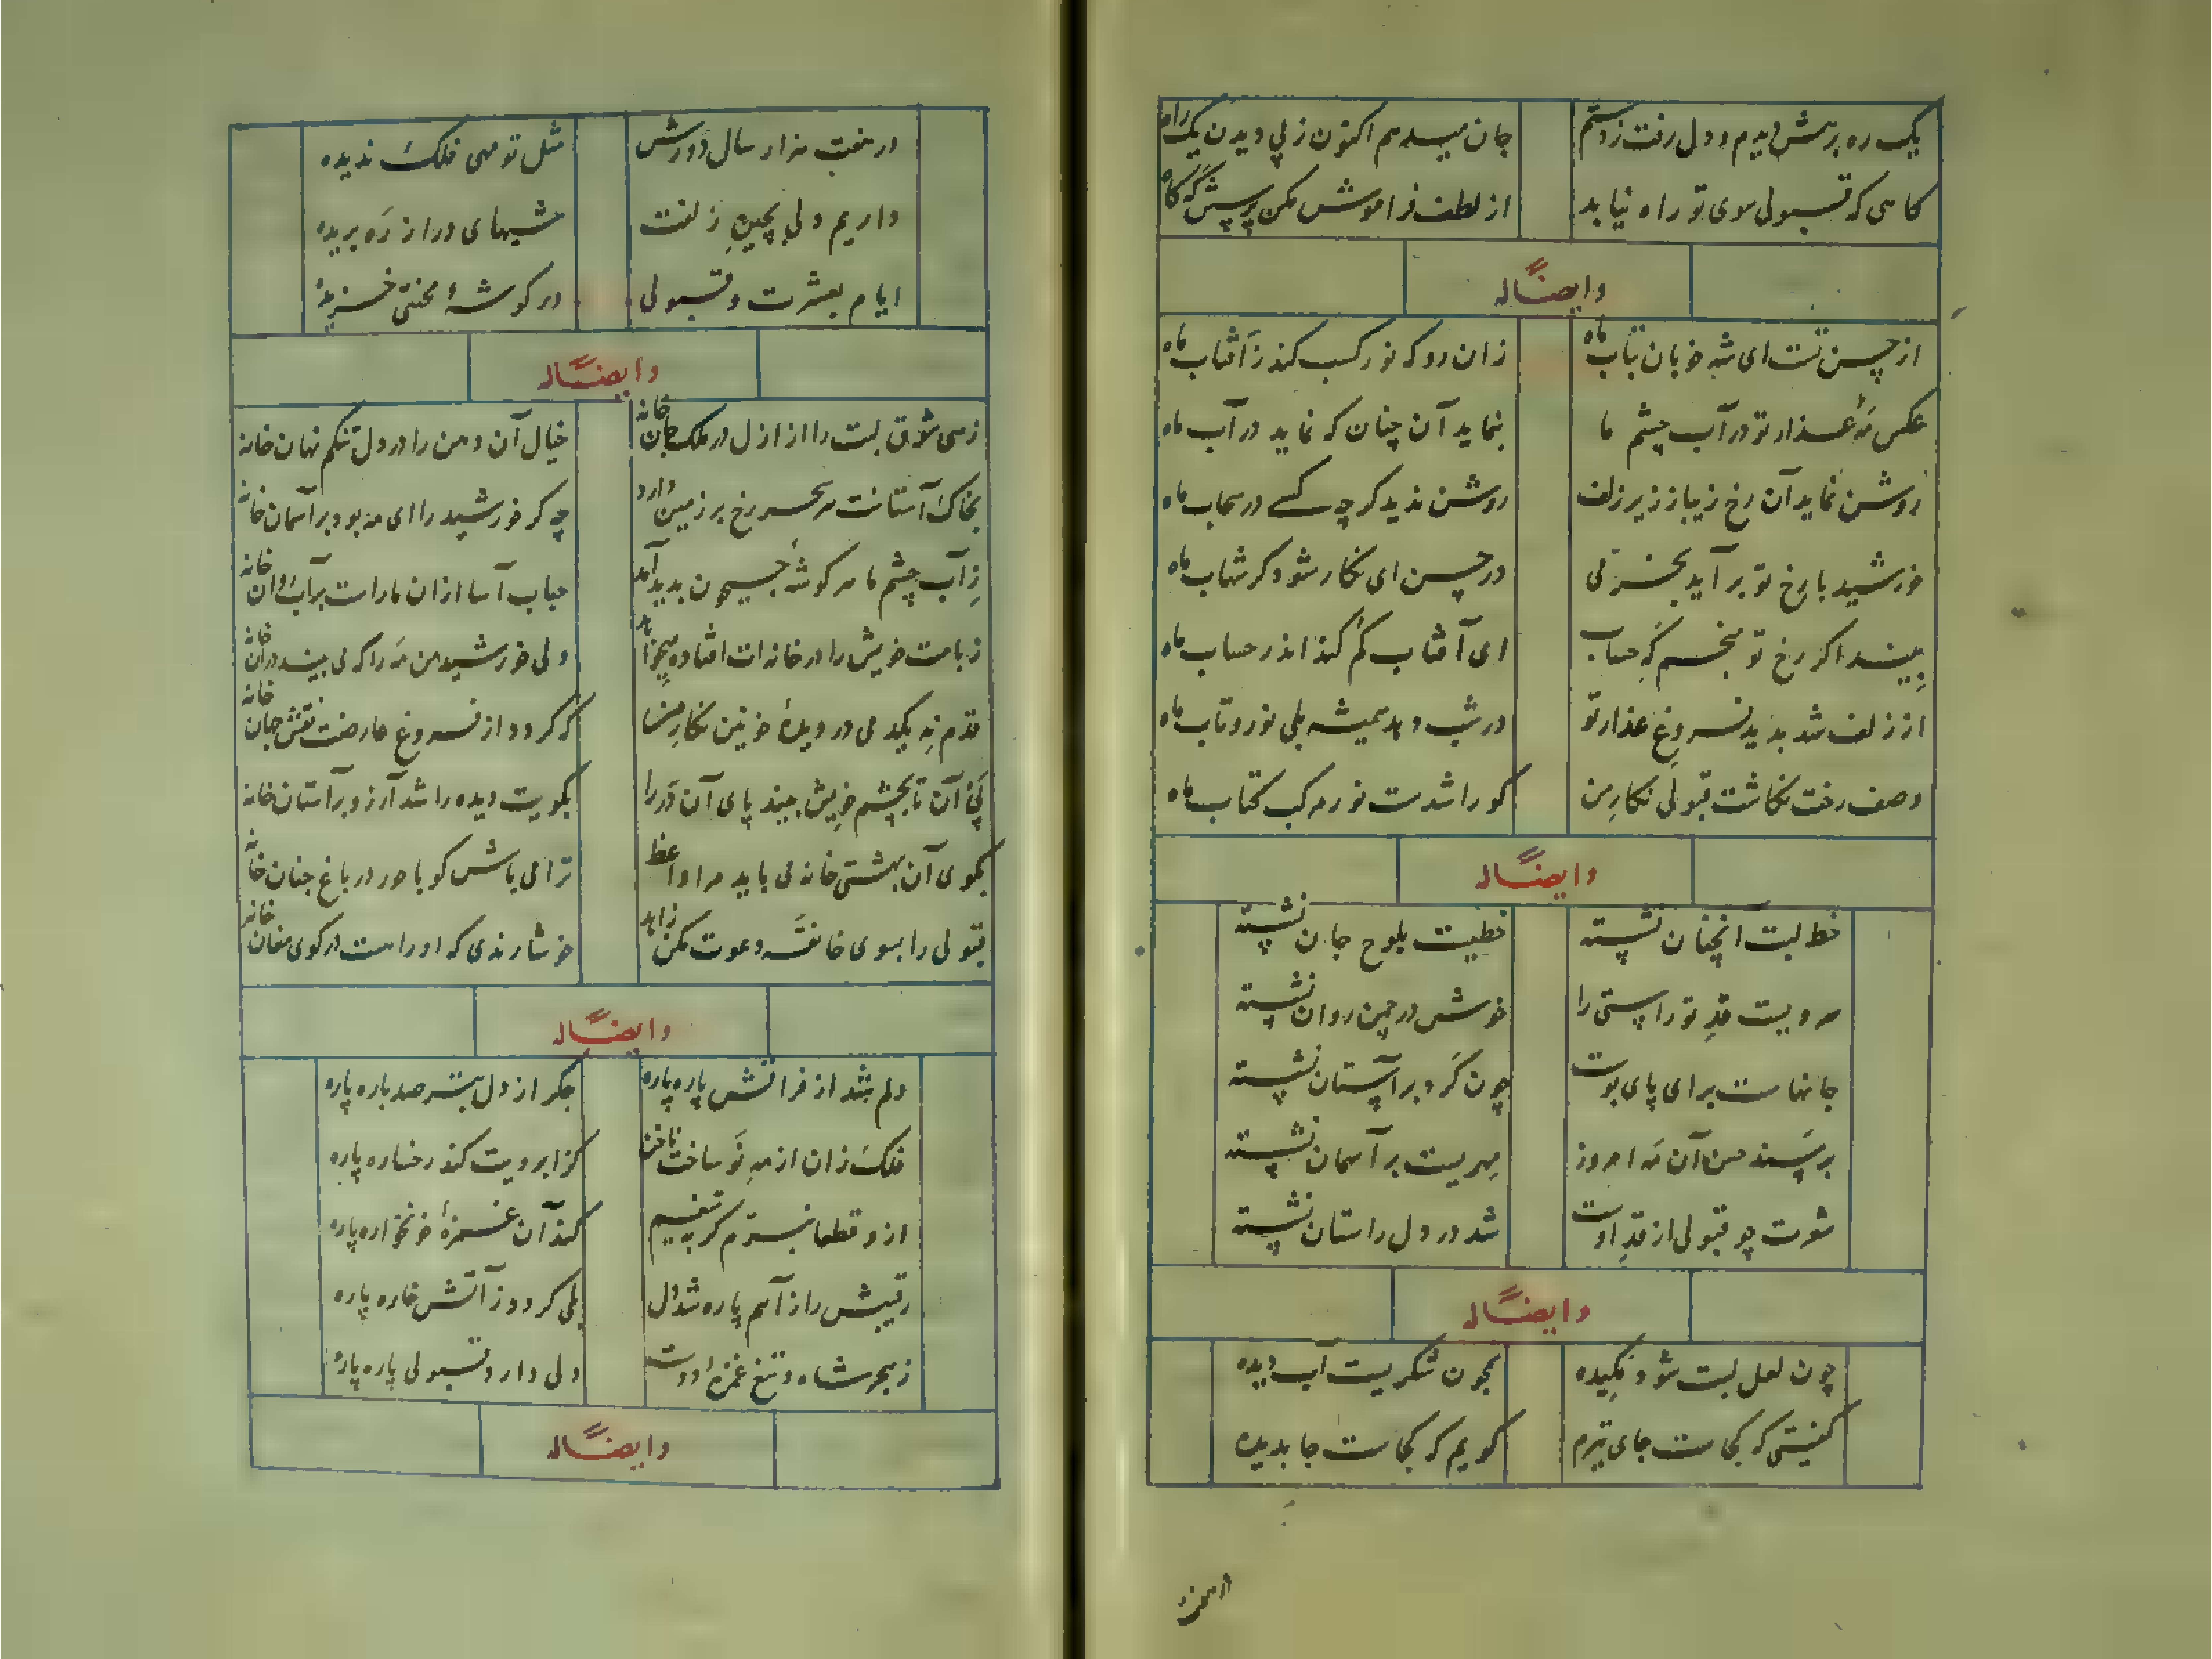 یک ره برهش دیدم و دل رفت ز دستم جان میدهم اکنون ز پی دیدن یک راه
کاهی که قبولی سوی تو راه نیابد از لطف فراموش مکن پرسش که کاه
وایضاً له
از حسن تست ای شه خوبان بتاب ماه زان رو که نور کسب کند ز آفتاب ماه
عکس مه عذار تو در آب چشم ما بنماید آن چنان که نماید در آب ماه
روشن نماید آن رخ زیبا ز زیر زلف روشن ندید کر چه کسی در سحاب ماه
خورشید با رخ تو برآید بخرّمی در حسن ای نکار شود کر شهاب ماه
بیند اکر رخ تو منجم که حساب ای آفتاب کم کند اندر حساب ماه
از زلف شد بدید فروغ عذار تو در شب دهد همیشه بلی نور و تاب ماه
وصف رخت نکاشت قبولی نکار من کو را شدست نور مرکب کتاب ماه
وایضاً له
خط لبت آنچنان نشسته خطیست بلوح جان نشسته
سرویست قد تو راستی را خوش در چمن روان نشسته
جانهاست برای پای بوست چون کرد بر آستان نشسته
بر سمند من آن مه امروز مهریست بر آسمان نشسته
شوت چو قبولی از قد اوست شد در دل راستان نشسته
وایضاً له
چون لعل لبت شود مکیده بحون شکریست آب دیده
کفتی که کجاست جای تیرم کویم که کجاست جا بدیده
در هفت هزار سال دورش مثل تو مهی فلک ندیده
داریم دلی بچین زلفت شبهای دراز ره بریده
ایام بعشرت و قبولی در کوشهٔ محنتی خزیده
وایضاً له
زهی شوق لبت را از ازل در ملک جان خانه خیال آن دهن را در دل تنکم نهان خانه
بخاک آستانت هر سحر رخ بر زمین دارد چه کر خورشید را ای مه بود بر آسمان خانه
ز آب چشم ما هر کوشه جیحون بدید آمد حباب آسا از آن ما راست بر آب روان خانه
ز بامت خویش را در خانه ات افتاده ولی خورشید من مه را که می بیند در آن خانه
قدم نه یکدمی در دیدهٔ خونین نکار من که کردد از فروغ عارضت نقش جهان خانه
پی آن تا بچشم خویش بیند پای آن در را بکویت دیده را شد آرزو بر آستان خانه
بکوی آن بهشتی خانه می باید مرا واعظ ترا می باش کو با حور در باغ جنان خانه
قبولی را بسوی خانقه دعوت مکن زاهد خوشا رندی که او راست در کوی مغان خانه
وایضاً له
دلم شد از فراقش پاره پاره جکر از دل بتر صد باره پاره
فلک زان از مه نو ساخت ناخن کز ابرویت کند رخساره پاره
ازو قطعا نبرّم کر به تیغم کند آن غمزهٔ خونخواره پاره
رقیبش را ز آهم پاره شد دل بلی کردد ز آتش خاره پاره
ز هجر شاه و تیغ غمزهٔ اوست دلی دارد قبولی پاره پاره
وایضاً له